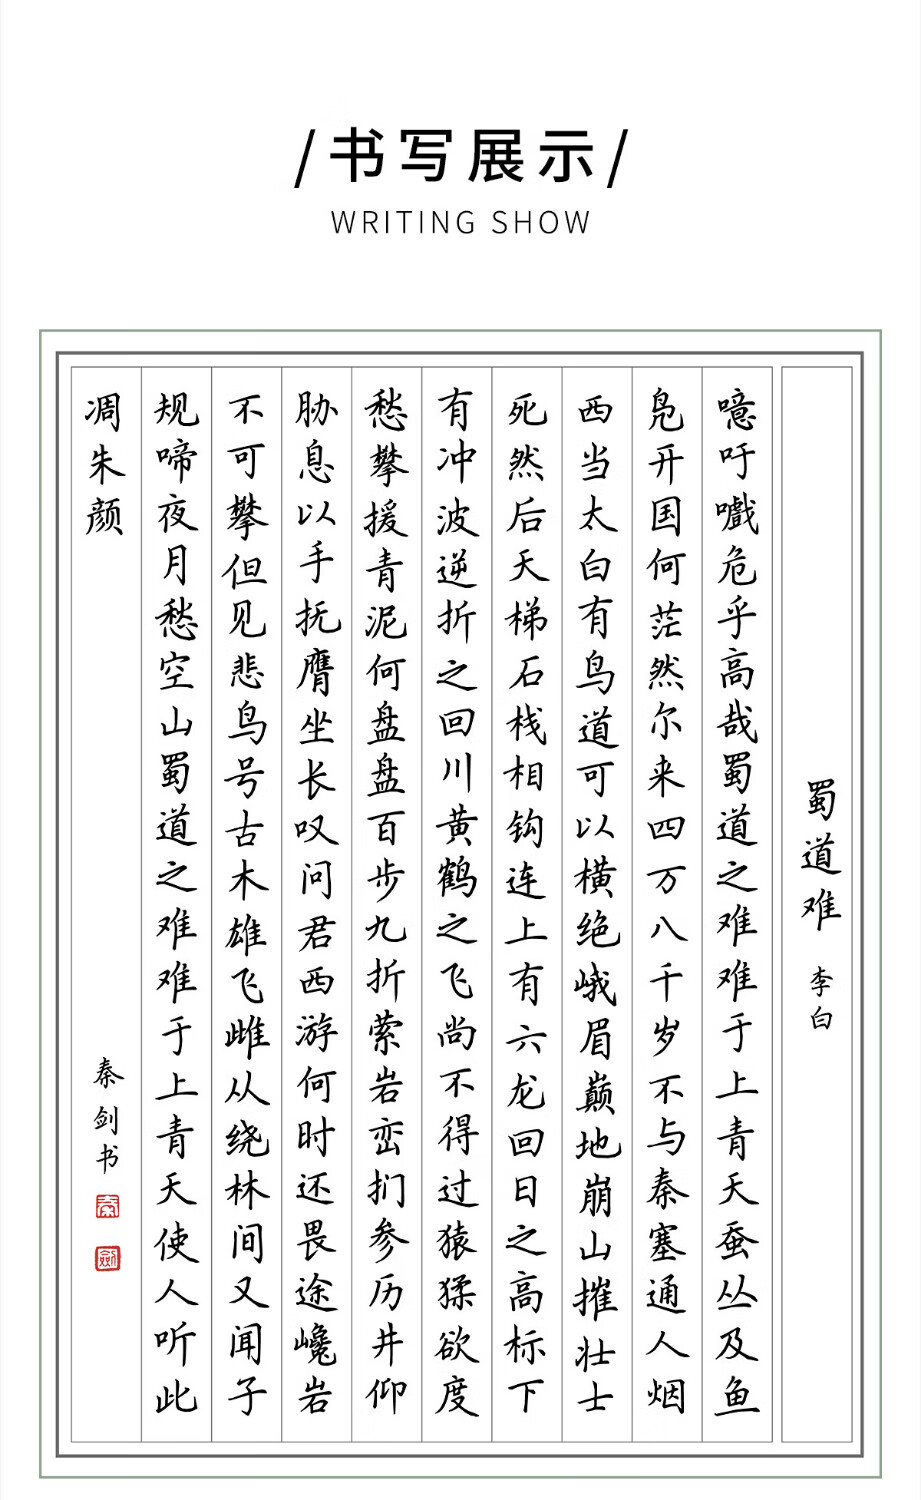 /书写展示/
WRITING SHOW
蜀道难 李白
噫吁嚱危乎高哉蜀道之难难于上青天蚕丛及鱼
凫开国何茫然尔来四万八千岁不与秦塞通人烟
西当太白有鸟道可以横绝峨眉巅地崩山摧壮士
死然后天梯石栈相钩连上有六龙回日之高标下
有冲波逆折之回川黄鹤之飞尚不得过猿猱欲度
愁攀援青泥何盘盘百步九折萦岩峦扪参历井仰
胁息以手抚膺坐长叹问君西游何时还畏途巉岩
不可攀但见悲鸟号古木雄飞雌从绕林间又闻子
规啼夜月愁空山蜀道之难难于上青天使人听此
凋朱颜
秦剑书
秦
劍